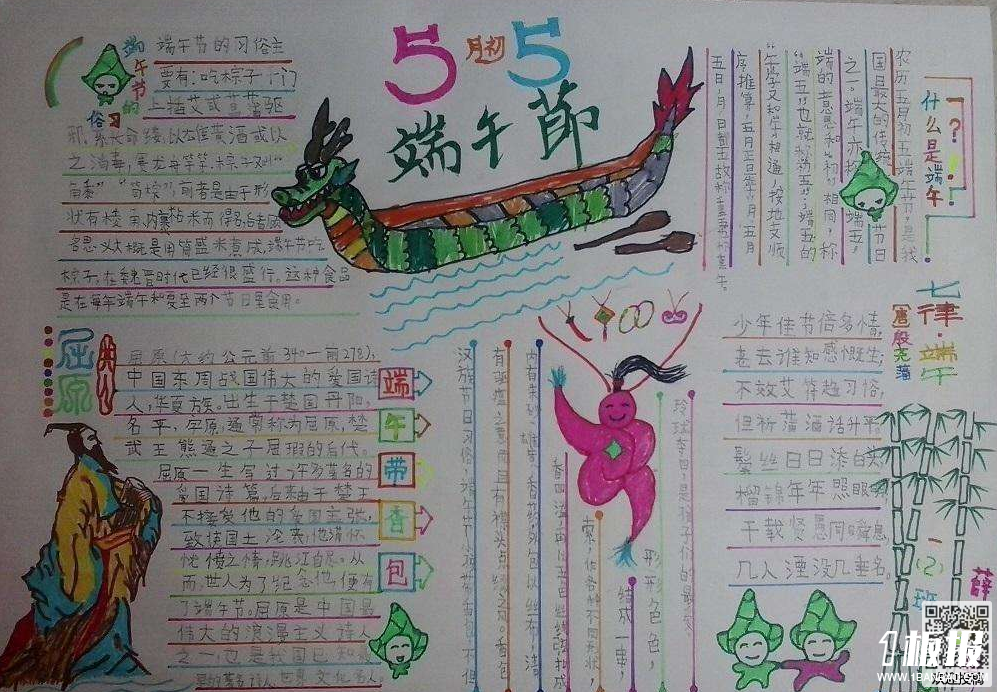 5月初5
端午節
端午节的习俗
端午节的习俗主
要有：吃粽子，门
上插艾或菖蒲驱
邪，系长命缕，以
之消毒，赛龙舟等等，粽子又叫“
角黍”“筒粽”，前者是由于形
状有棱角、内裹粘米而得名，后者顾
名思义大概是用筒盛米煮成，端午节吃
粽子，在魏晋时代已经很盛行。这种食品
是在每年端午和夏至两个节日里食用。
什么是端午？
农历五月初五端午节，是我
国最大的传统节日
之一。端午亦称端五，
端的意思和“初”相同，称
“端五”也就称初五；端五的
“五”字又和午相通，按地支顺
序推算，五月正是“午”月
屈原
屈原（大约公元前340—前278），
中国东周战国伟大的爱国诗
人，华夏族。出生于楚国丹阳，
名平，字原，通常称为屈原，楚
武王熊通之子屈瑕的后代。
屈原一生写过许多著名的
爱国诗篇，后来由于楚王
不接受他的爱国主张，
致使国土沦丧，他满怀
忧愤之情，跳江自尽。从
而世人为了纪念他，便有
了端午节。屈原是中国最
伟大的浪漫主义诗人
之一，也是我国已知最
端午带香包
汉族节日习俗，端午节小孩
内有朱砂、雄黄、香药，外包以丝布，清
香四溢，再以五色丝线弦扣成
索，作各种不同形状，
结成一串，
形形色色，
七律·端午
唐 殷尧藩
少年佳节倍多情，
老去谁知感慨生；
不效艾符趋习俗，
但祈蒲酒话升平。
鬓丝日日添白
榴锦年年照眼明
千载贤愚同瞬息
几人湮没几垂名。
一（2）班
薛
板报
WWW.1BANBAO.COM